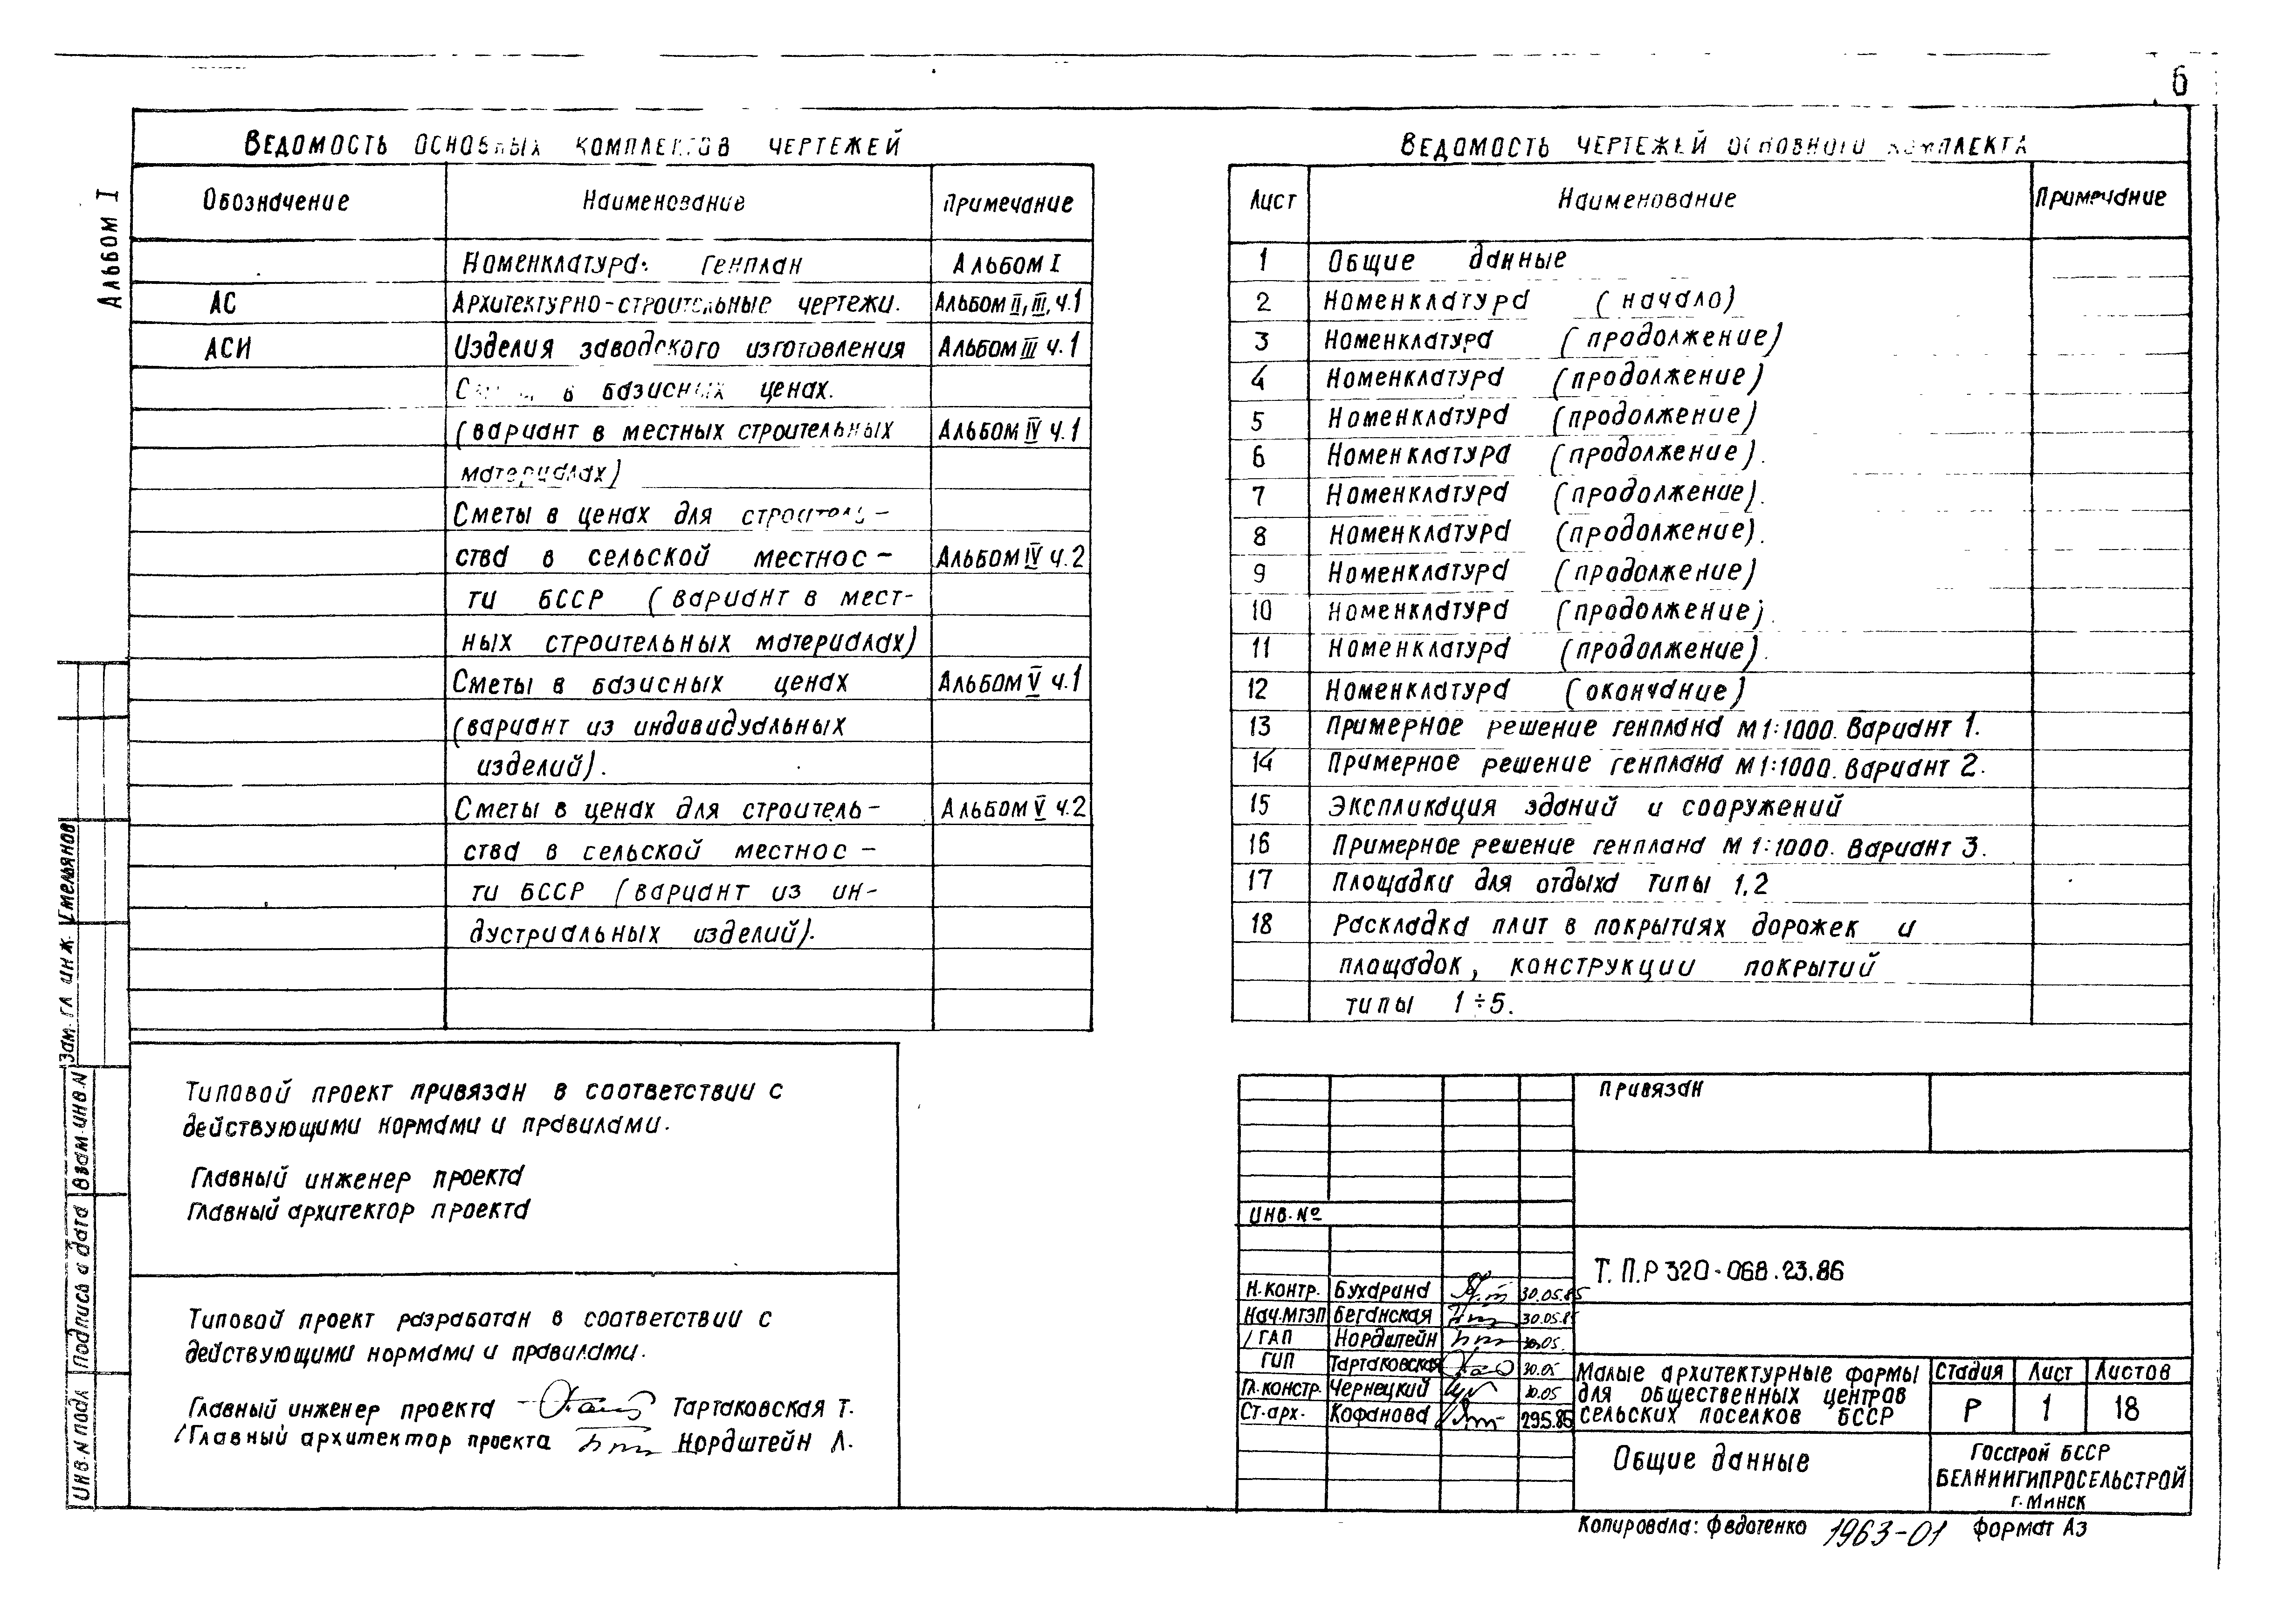 6
Альбом I
Ведомость основных комплектов чертежей
Обозначение Наименование Примечание
Номенклатура. Генплан Альбом I
АС Архитектурно-строительные чертежи. Альбом II, III, ч.1
АСИ Изделия заводского изготовления Альбом III ч.1
в базисных ценах.
(вариант в местных строительных Альбом IV ч.1
материалах)
Сметы в ценах для строитель-
ства в сельской местнос- Альбом IV ч.2
ти БССР (вариант в мест-
ных строительных материалах)
Сметы в базисных ценах Альбом V ч.1
(вариант из индивидуальных
изделий).
Сметы в ценах для строитель- Альбом V ч.2
ства в сельской местнос-
ти БССР (вариант из ин-
дустриальных изделий).
Ведомость чертежей основного комплекта
Лист Наименование Примечание
1 Общие данные
2 Номенклатура (начало)
3 Номенклатура (продолжение)
4 Номенклатура (продолжение)
5 Номенклатура (продолжение)
6 Номенклатура (продолжение).
7 Номенклатура (продолжение).
8 Номенклатура (продолжение).
9 Номенклатура (продолжение)
10 Номенклатура (продолжение).
11 Номенклатура (продолжение).
12 Номенклатура (окончание)
13 Примерное решение генплана М 1:1000. Вариант 1.
14 Примерное решение генплана М 1:1000. Вариант 2.
15 Экспликация зданий и сооружений
16 Примерное решение генплана М 1:1000. Вариант 3.
17 Площадки для отдыха типы 1,2
18 Раскладка плит в покрытиях дорожек и
площадок, конструкции покрытий
типы 1÷5.
Типовой проект привязан в соответствии с
действующими нормами и правилами.
Главный инженер проекта
Главный архитектор проекта
Типовой проект разработан в соответствии с
действующими нормами и правилами.
Главный инженер проекта Тартаковская Т.
Главный архитектор проекта Нордштейн Л.
Зам. гл инж. Емельянов
Взам.инв.N
Подпись и дата
Инв.N подл
Привязан
Инв. №
Т.П.Р 320-068.23.86
Н.контр. Бухарина 30.05.85
Нач.МТЭП Беганская 30.05.85
ГАП Нордштейн 30.05.
ГИП Тартаковская 30.05
Гл.констр. Чернецкий 30.05
Ст.арх. Кофанова 29.5.85
Малые архитектурные формы
для общественных центров
сельских поселков БССР
Стадия Лист Листов
Р 1 18
Общие данные
Госстрой БССР
БЕЛНИИГИПРОСЕЛЬСТРОЙ
г. Минск
Копировала: Федотенко 1963-01 Формат А3